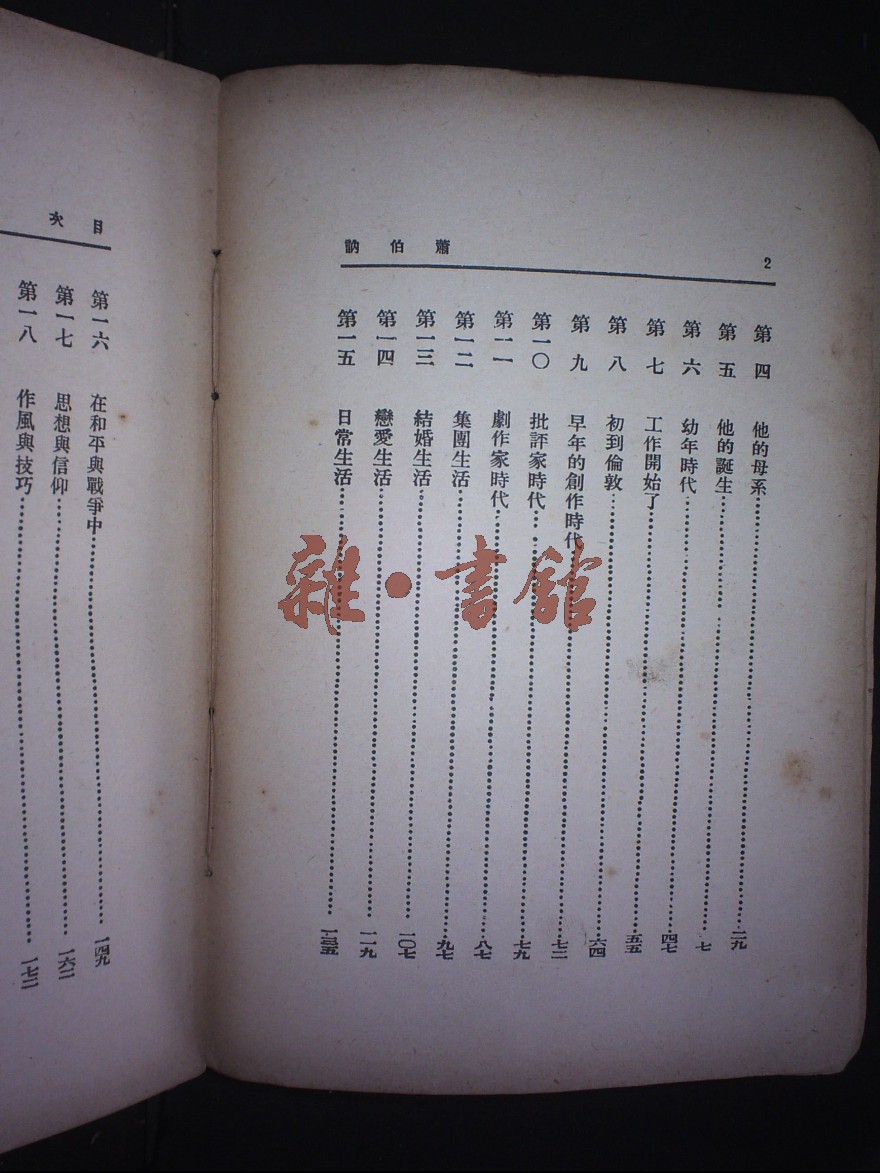 2
蕭伯訥
第四 他的母系 二九
第五 他的誕生 七
第六 幼年時代 四七
第七 工作開始了 五五
第八 初到倫敦 六四
第九 早年的創作時代 七三
第一〇 批評家時代 七九
第一一 劇作家時代 八七
第一二 集團生活 九七
第一三 結婚生活 一〇七
第一四 戀愛生活 一一九
第一五 日常生活 一三五
目次
第一六 在和平與戰爭中 一四九
第一七 思想與信仰 一六二
第一八 作風與技巧 一七三
雜·書館